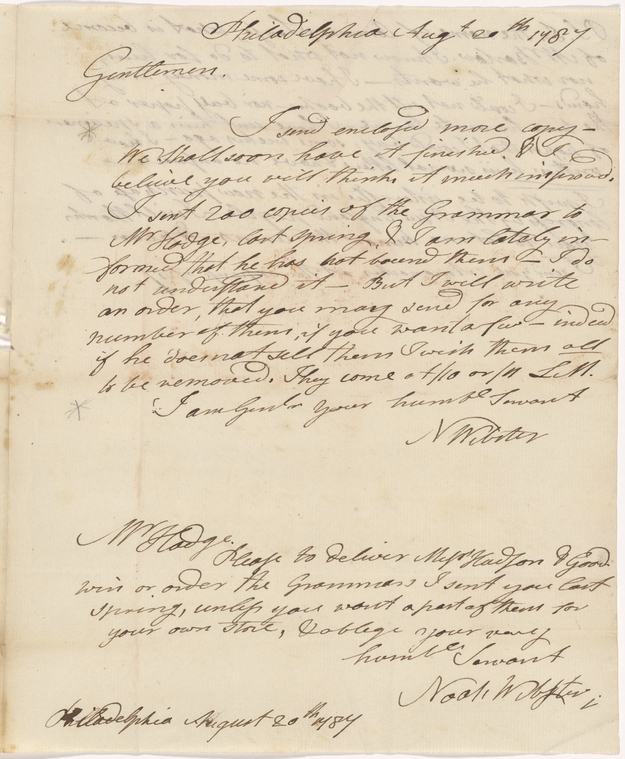 Philadelphia Augt 20th 1787
Gentlemen.
I send enclosed more copy -
We shall soon have it finished & I
believe you will think it much improved.
I sent 200 copies of the Grammar to
Mr Hodge, last spring, & I am lately in-
formed that he has not bound them - I do
not understand it - But I will write
an order, that you may send for any
number of them, if you want a few - indeed
if he does not sell them I wish them all
to be removed. They come at /10 or /11 L.M.
I am Gentn your humble Servant
N Webster
Mr Hodge.
Please to deliver Messrs Hudson & Good-
win or order the Grammars I sent you last
spring, unless you want a part of them for
your own store, & oblege your very
humble Servant
Noah Webster
Philadelphia August 20th 1787